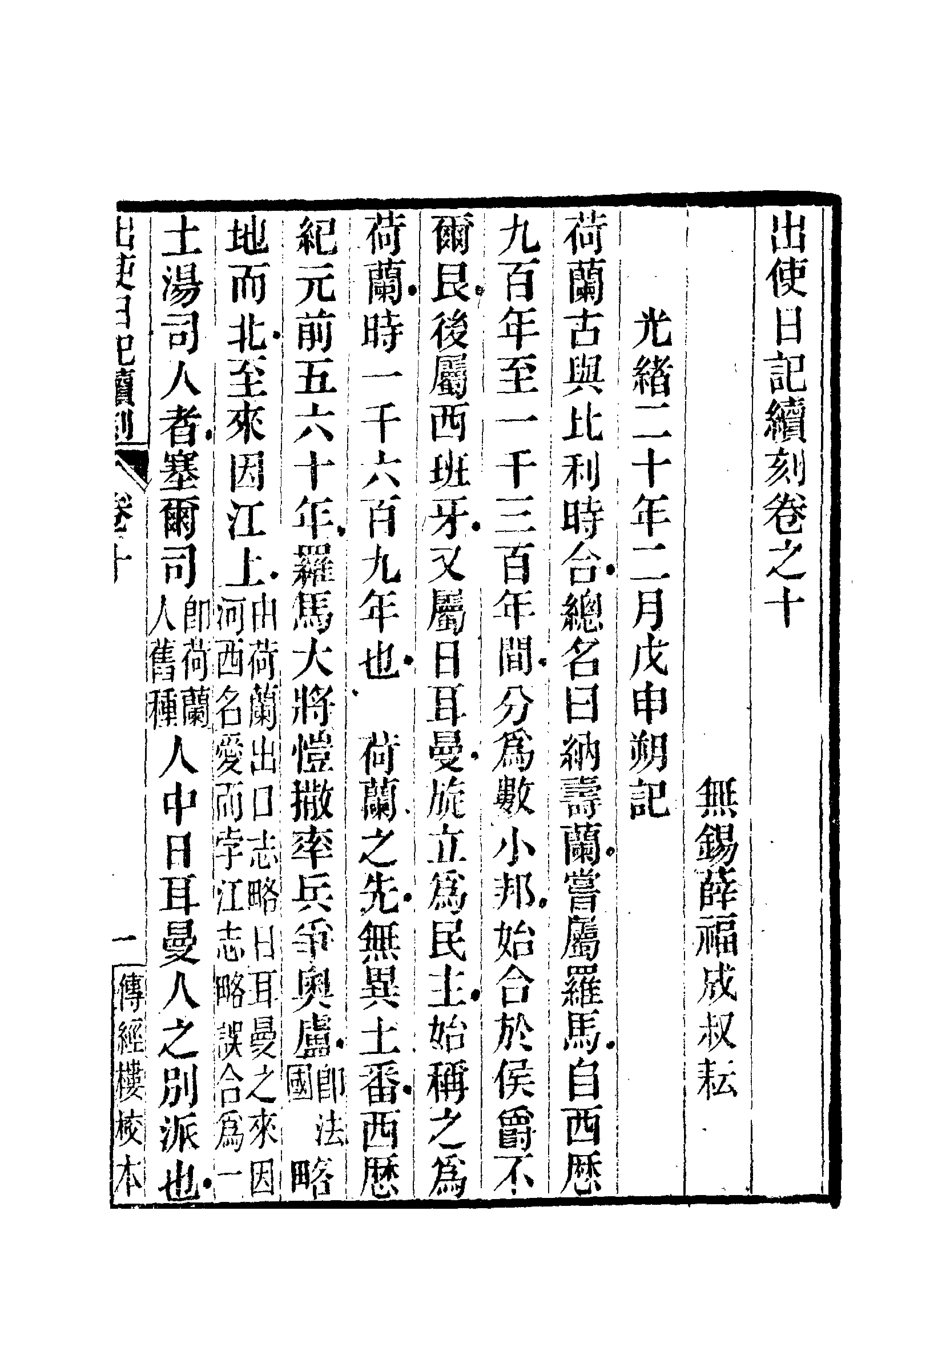 出使日記續刻卷之十
無錫薛福成叔耘
光緒二十年二月戊申朔記
荷蘭古與比利時合總名曰納壽蘭嘗屬羅馬自西歷
九百年至一千三百年間分爲數小邦始合於侯爵不
爾艮後屬西班牙又屬日耳曼旋立爲民主始稱之爲
荷蘭時一千六百九年也　荷蘭之先無異土番西歷
紀元前五六十年羅馬大將愷撒率兵爭奧盧卽法國略
地而北至來因江上由荷蘭出口志略日耳曼之來因河西名愛而孛江志略誤合爲一
土湯司人者塞爾司卽荷蘭人舊種人中日耳曼人之別派也
出使日記續刻　卷十　一　傳經樓校本